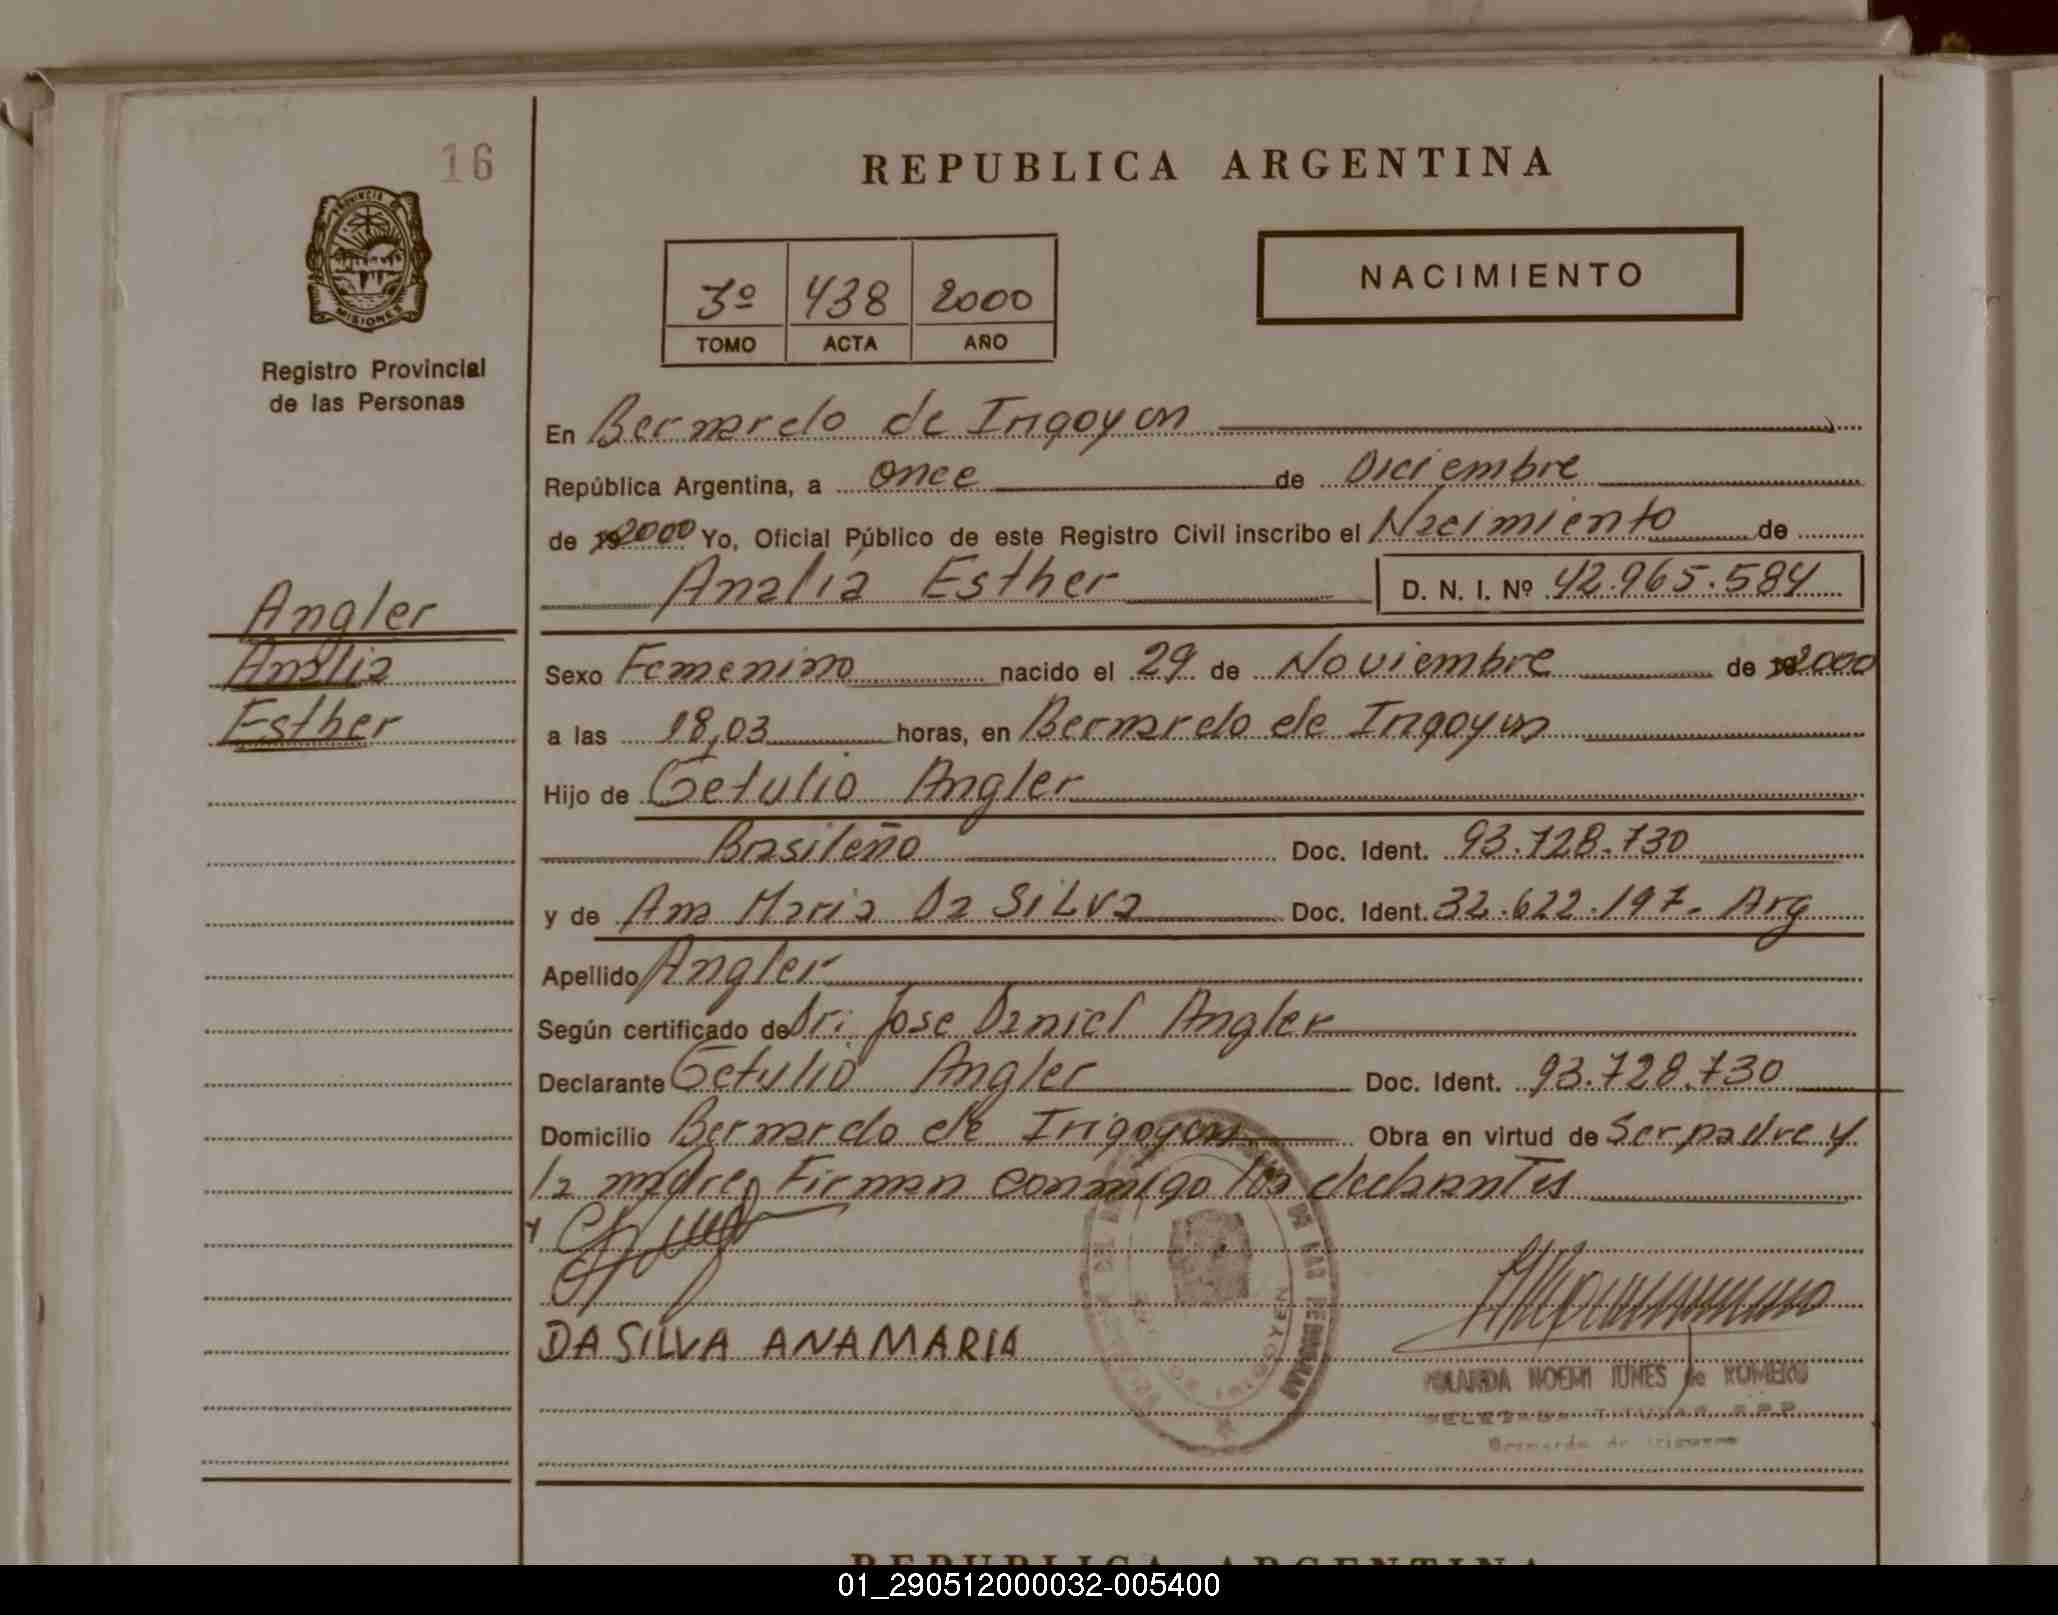 16
REPUBLICA ARGENTINA
PROVINCIA DE
MISIONES
Registro Provincial
de las Personas
3º 438 2000
TOMO ACTA AÑO
NACIMIENTO
En Bernardo de Irigoyen
República Argentina, a once de Diciembre
de 2000 Yo, Oficial Público de este Registro Civil inscribo el Nacimiento de
Analía Esther D. N. I. Nº 42.965.584
Angler
Analia
Esther
Sexo Femenino nacido el 29 de Noviembre de 2000
a las 18,03 horas, en Bernardo de Irigoyen
Hijo de Getulio Angler
Brasileño Doc. Ident. 93.728.730
y de Ana Maria Da SiLva Doc. Ident. 32.622.197. Arg
Apellido Angler
Según certificado de Dr. Jose Daniel Angler
Declarante Getulio Angler Doc. Ident. 93.728.730
Domicilio Bernardo de Irigoyen Obra en virtud de Ser padre y
la madre, Firman conmigo los declarantes
DA SILVA ANA MARIA
YOLANDA NOEMI JUNES de ROMERO
DELEGADA TITULAR R.P.P
Bernardo de Irigoyen
REPUBLICA ARGENTINA
01_290512000032-005400